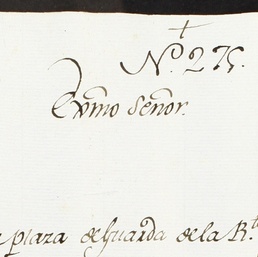 +
Nº. 275.
Exmo Señor.
plaza de Guarda de la Rl.